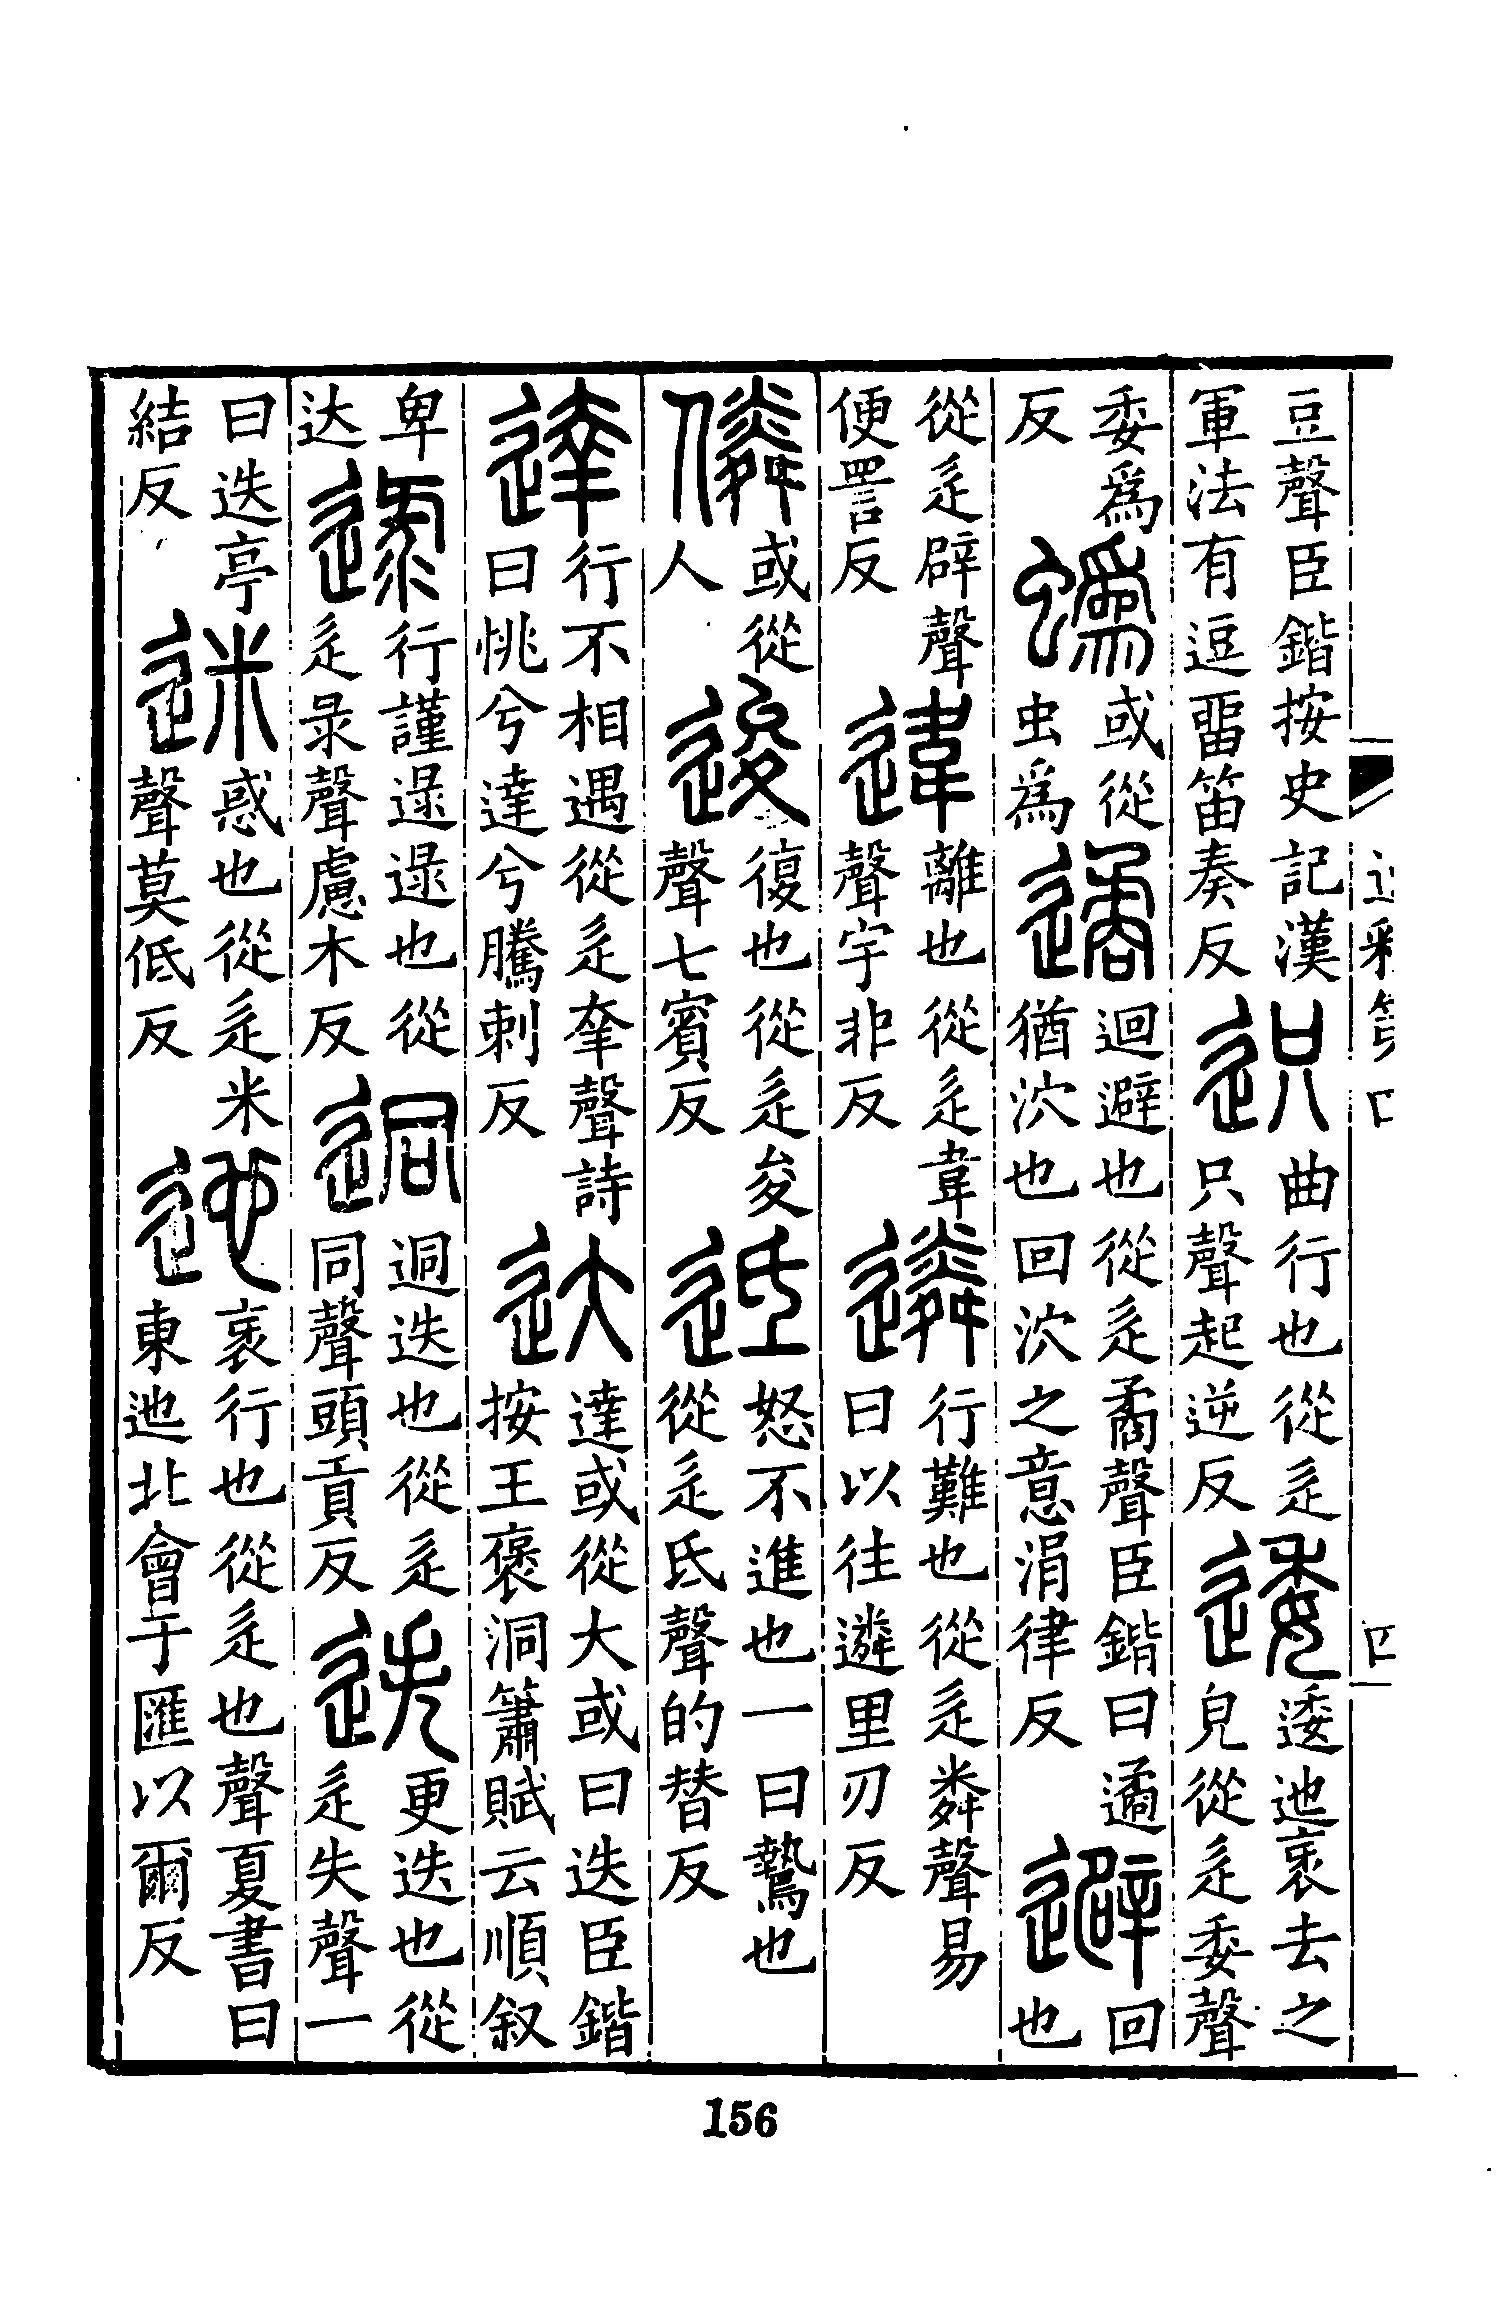 豆聲臣鍇按史記漢軍法有逗畱笛奏反迟曲行也從辵只聲起逆反逶逶迆衺去之皃從辵委聲
委爲反蟡或從虫爲遹迴避也從辵矞聲臣鍇曰遹猶泬也回泬之意涓律反避回也
從辵辟聲便詈反違離也從辵韋聲宇非反遴行難也從辵粦聲易曰以往遴里刃反
僯或從人逡復也從辵夋聲七賓反𨑩怒不進也一曰鷙也從辵氐聲的替反
達行不相遇從辵羍聲詩曰恌兮達兮騰剌反达達或從大或曰迭臣鍇按王褒洞簫賦云順叙
卑达逯行謹逯逯也從辵彔聲慮木反迵迵迭也從辵同聲頭貢反迭更迭也從辵失聲一
曰迭亭結反迷惑也從辵米聲莫低反迆衺行也從辵也聲夏書曰東迆北會于匯以爾反
156